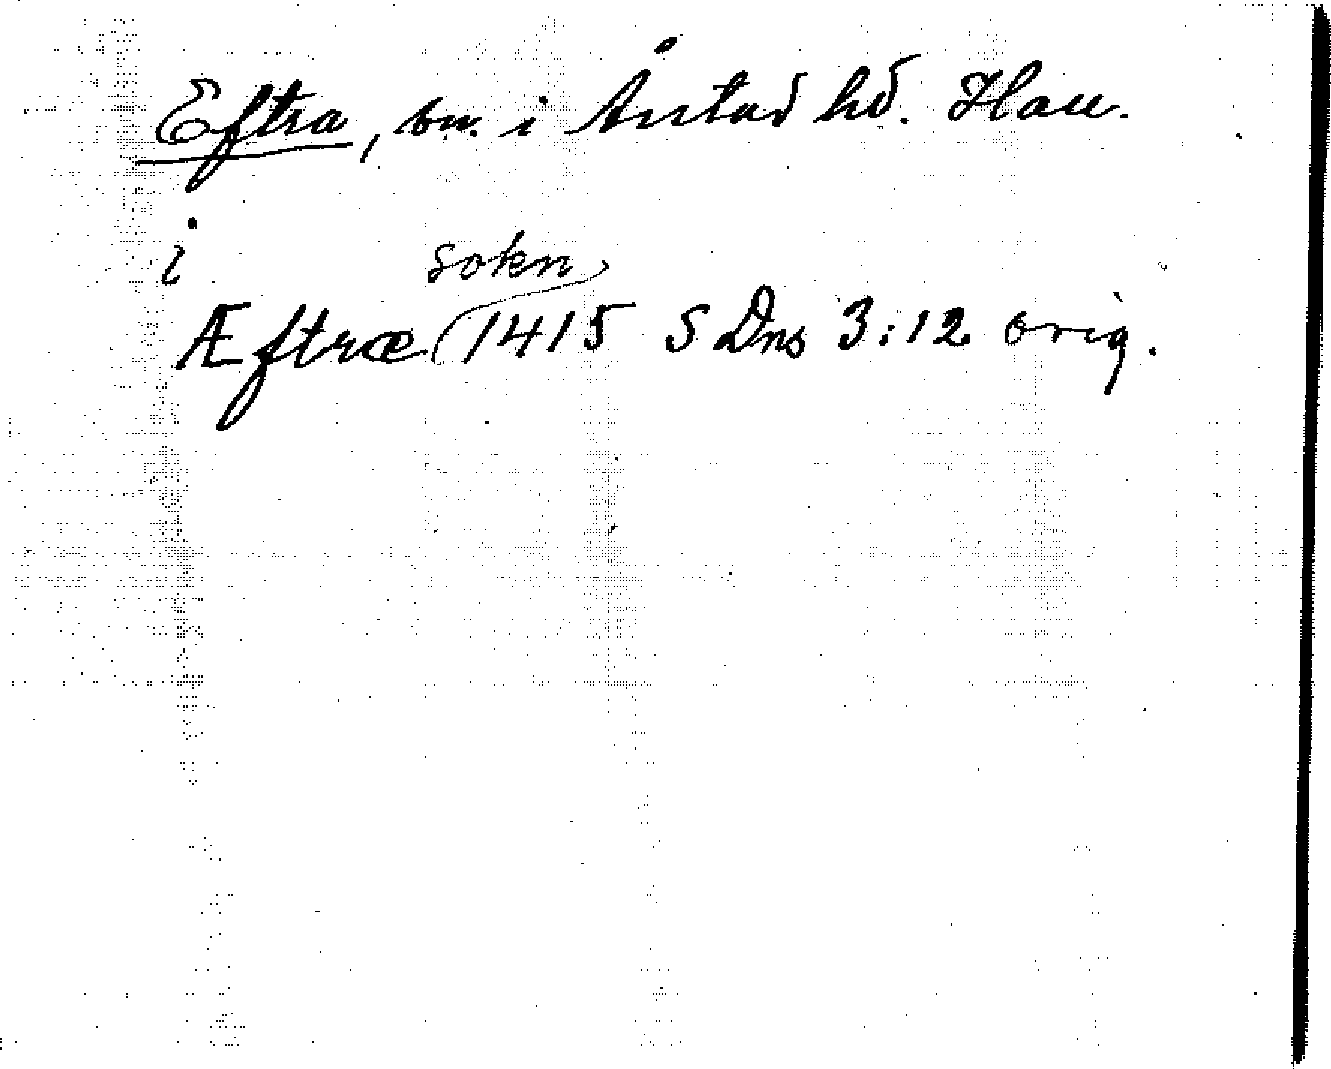 Eftra, sn. i Årstad hd. Hall.
i
sokn
Æftræ 1415 SDns 3:12 orig.